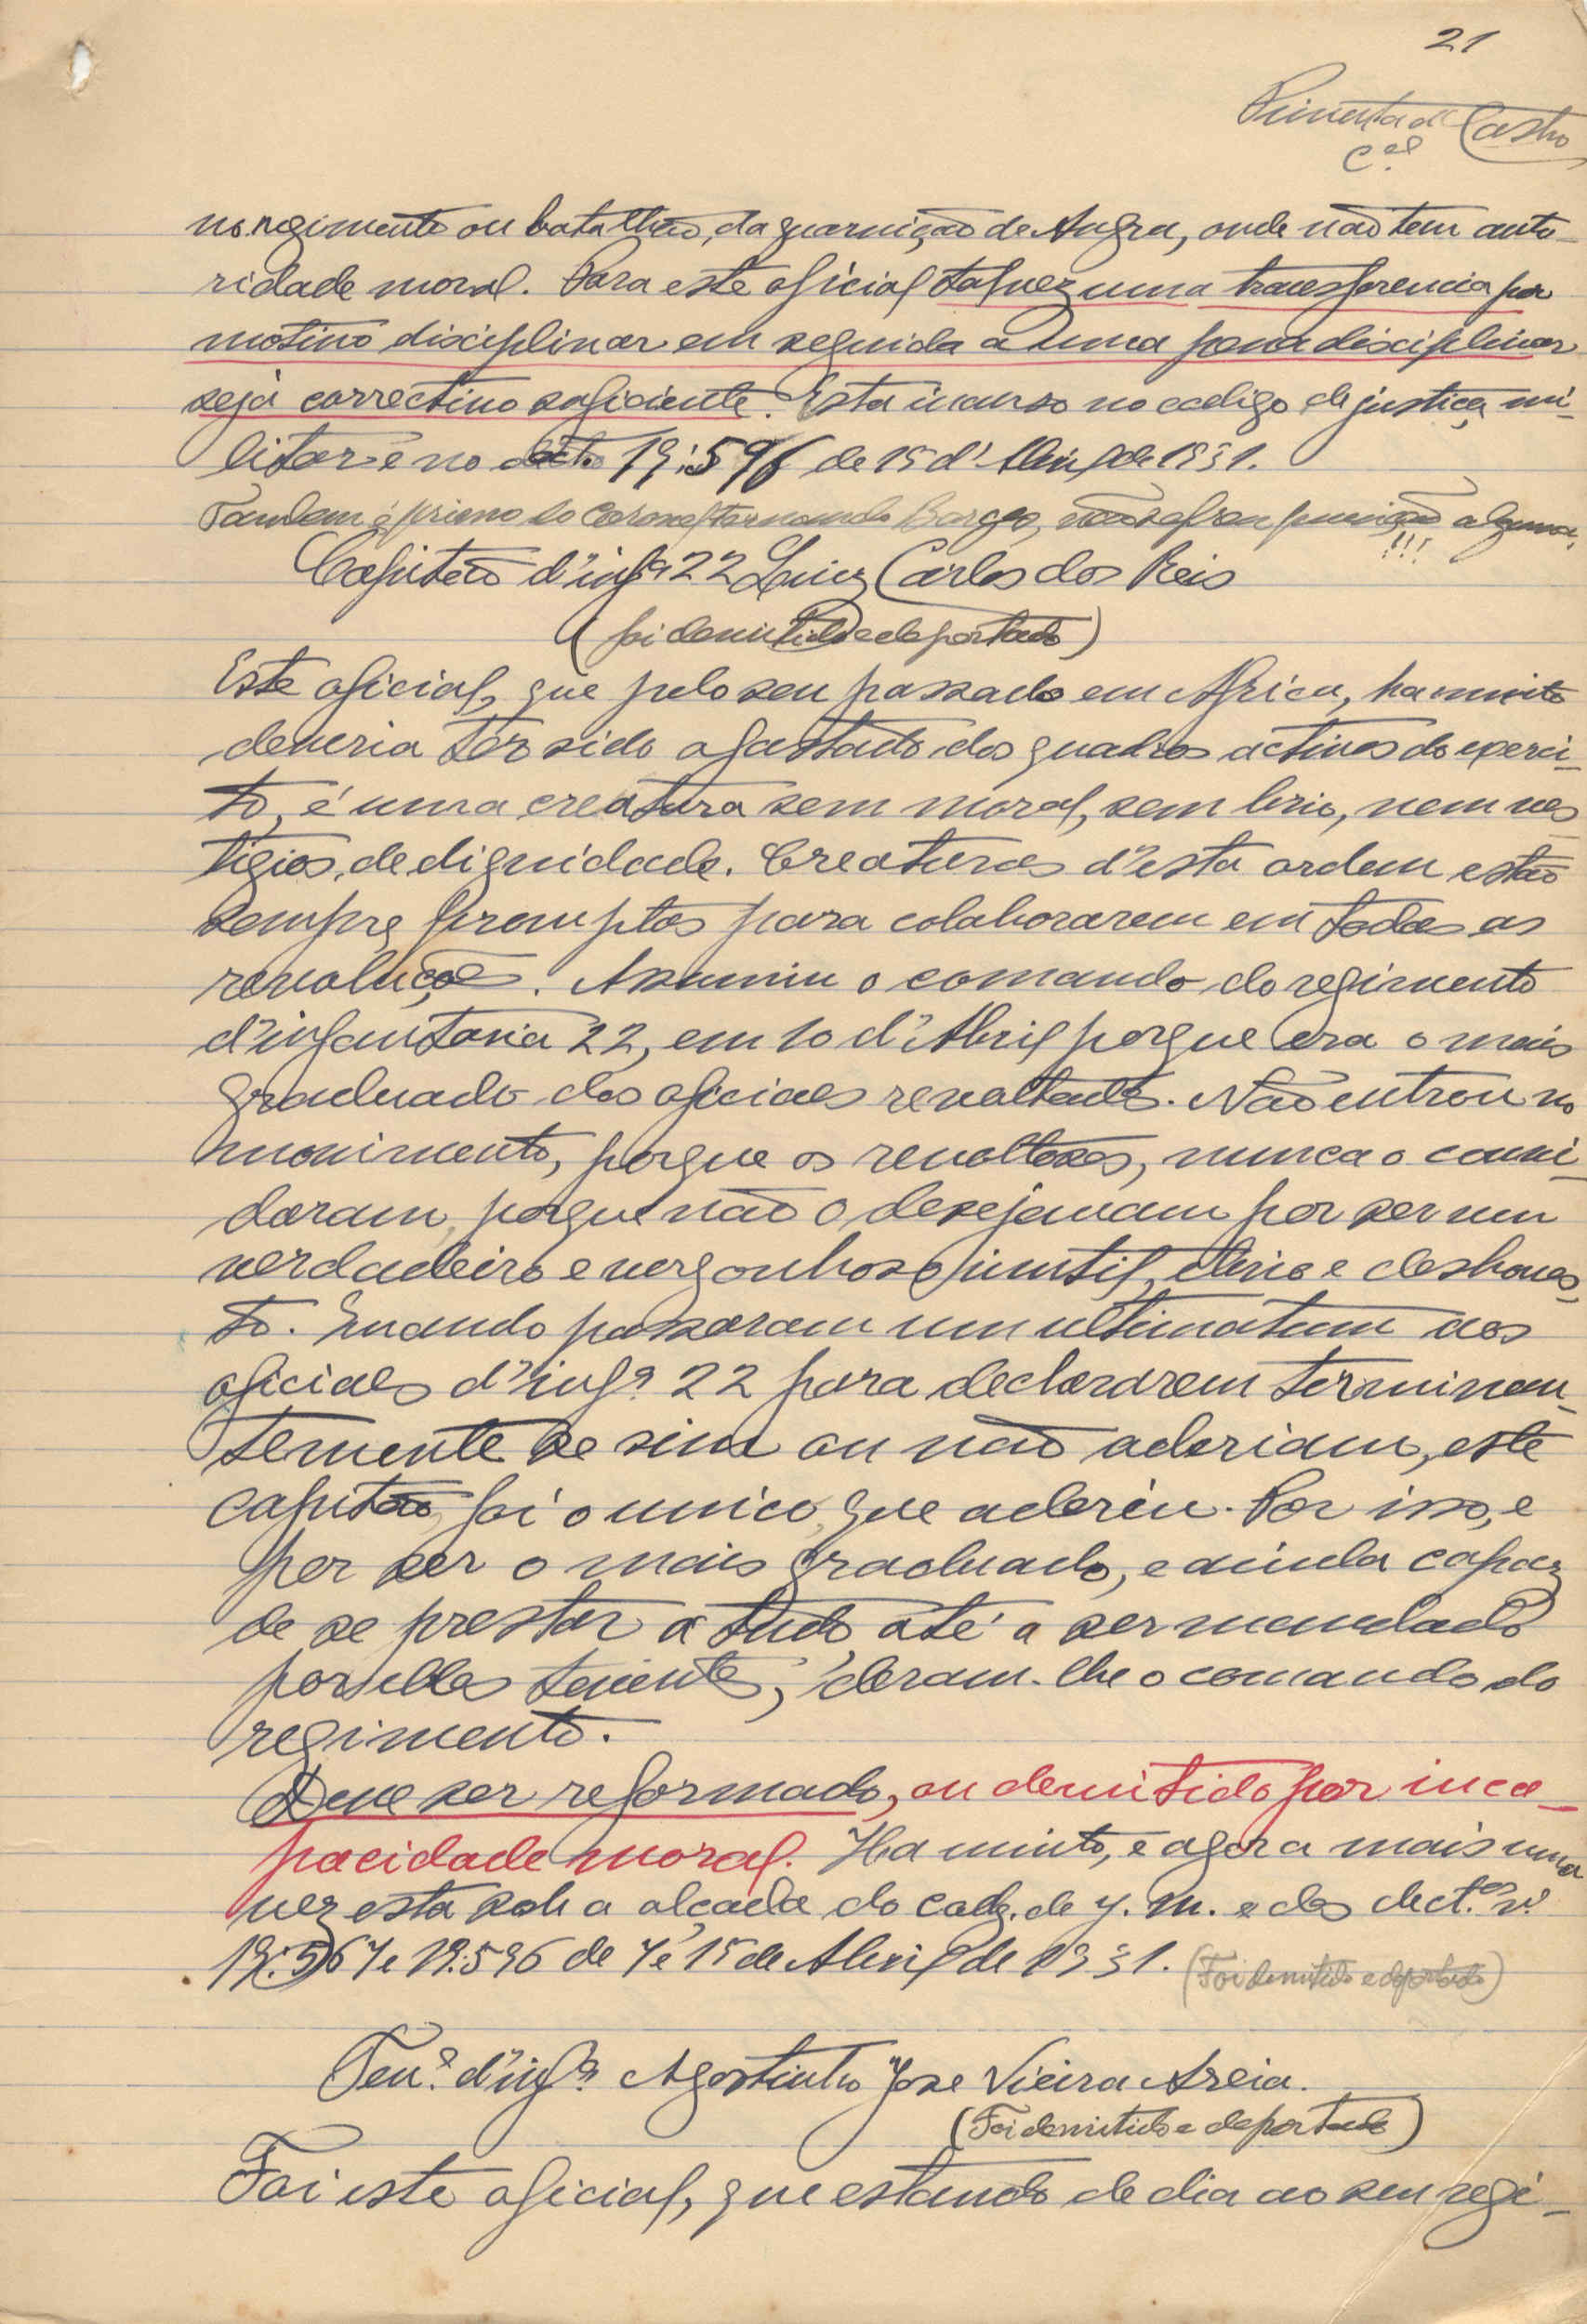 21
Pimenta de Castro
C.el
no regimento ou batalhão, da guarnição de Angra, onde não tem auto-
ridade moral. Para este oficial talvez uma transferencia por
motivo disciplinar em seguida a uma pena disciplinar
seja correctivo suficiente. Esta incurso no codigo de justiça mi-
litar e no decto 19:596 de 15 d'Abril de 1931.
Tambem é primo do Coronel Fernando Borges, não sofreu punição alguma,
!!!
Capitão d'infª 22 Luiz Carlos dos Reis
(foi demitido e deportado)
Este oficial, que pelo seu passado em Africa, ha muito
deveria ter sido afastado dos quadros activos do exerci-
to, é uma creatura sem moral, sem brio, nem ves
tigios, de dignidade. Creaturas d'esta ordem estão
sempre promptos para colaborarem em todas as
revoluções. Assumiu o comando do regimento
d'infantaria 22, em 10 d'Abril porque era o mais
graduado dos oficiaes revoltados. Não entrou no
movimento, porque os revoltosos, nunca o convi-
daram, porque não o desejavam por ser um
verdadeiro e vergonhoso inutil, ebrio e deshones-
to. Quando passaram um ultimatum aos
oficiaes d'infª 22 para declararem terminan-
temente se sim ou não aderiam, este
capitão, foi o unico, que aderiu. Por isso, e
por ser o mais graduado, e ainda capaz
de se prestar a tudo até a ser mandado
por elles tenentes, deram-lhe o comando do
regimento.
Deve ser reformado, ou demitido por inca-
pacidade moral. Ha muito, e agora mais uma
vez esta sob a alçada do codg. de J. M. e dos dect.os nº
19:567 e 19:596 de 7 e 15 de Abril de 1931. (Foi demitido e deportado)
Ten.e d'infª Agostinho Jose Vieira Areia.
(Foi demitido e deportado)
Foi este oficial, que estando de dia ao seu regi-